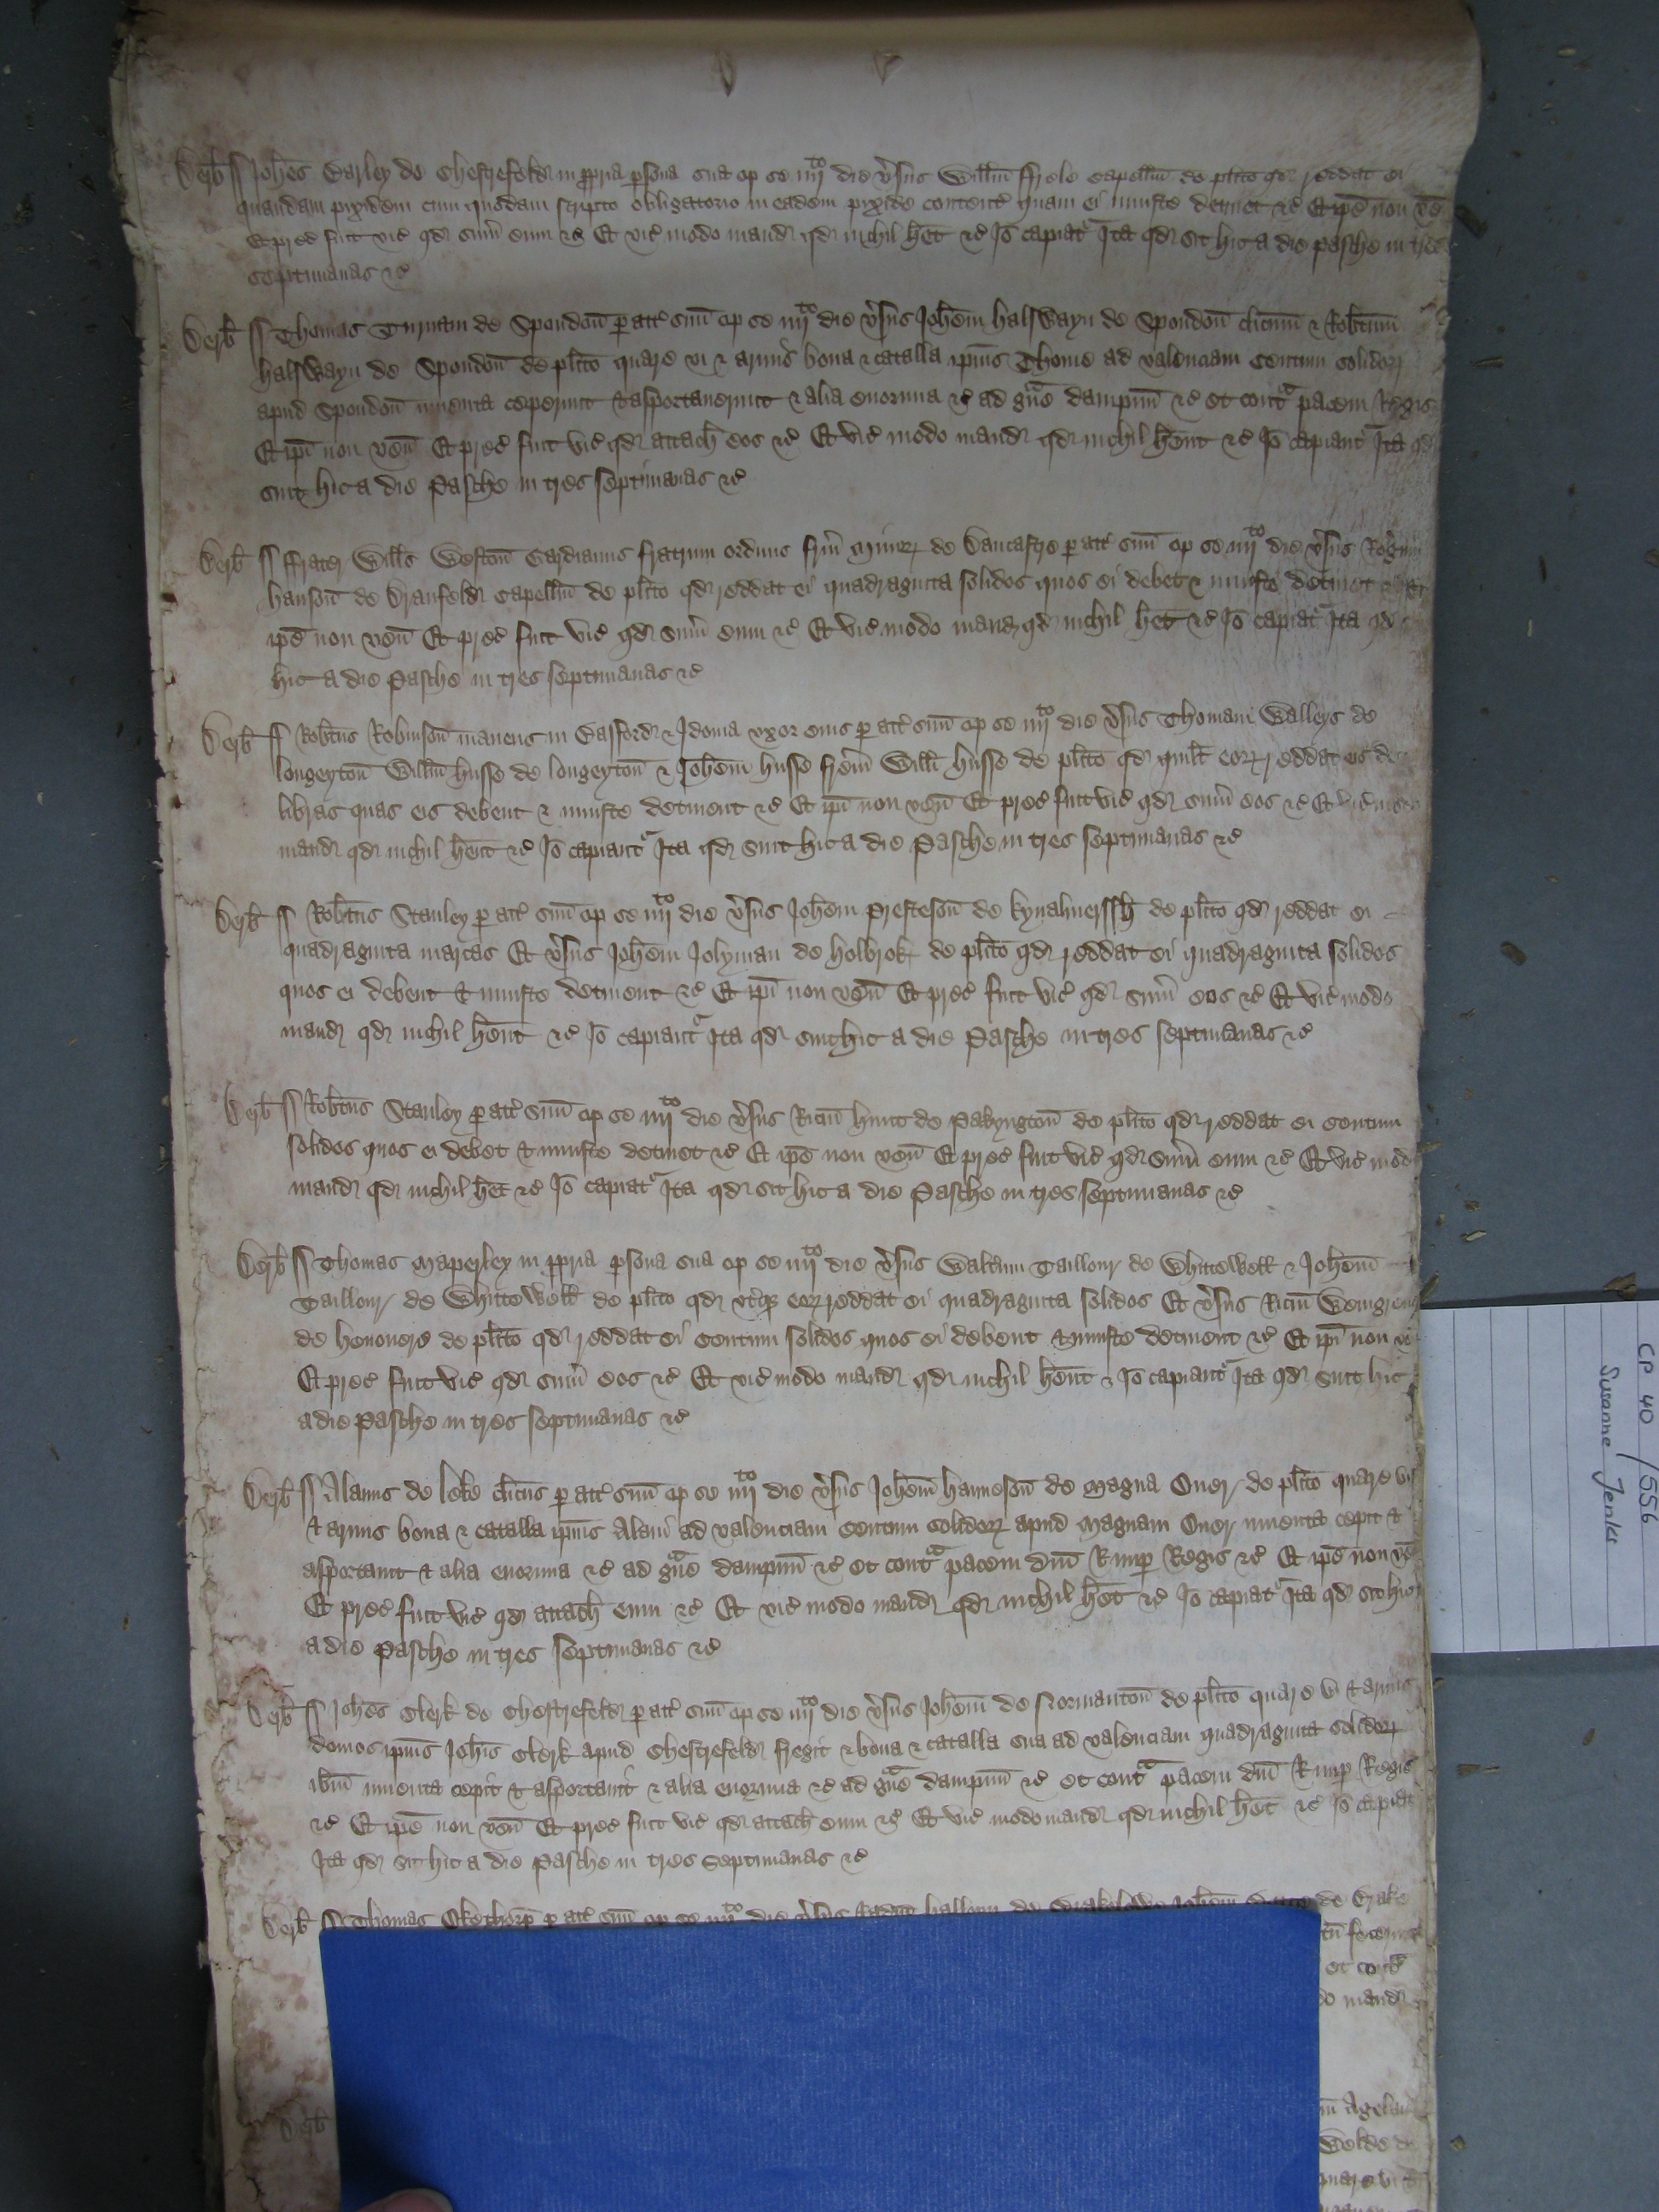 Derb ſſ Joh̄es Darley de Chestrefeld in ppria psona sua op se iiijto die v̄sus Willm̄ capellm̄ de plīto qd reddat ei
quandam pixidem cum quodam scripto obligatorio in eadem pixide content quam ei iniuste detinet &c Et ip̄e non ven̄
Et prec̄ fuit vic̄ qd sum̄ eum &c Et vic̄ modo mand qd nichil h̄et &c Iō capiat Ita qd sit hic a die Pasche in tres
septimanas &c
Derb ſſ Thomas Turnan de Spondon̄ p att̄ suū op se iiijto die v̄sus Joh̄em Halfwayn de Spondon̄ cl̄icum & Rob̄tum
Halfwayn de Spondon̄ de plīto quare vi & armis bona & catalla ip̄ius Thome ad valenciam centum solidoꝝ
apud Spondon̄ inuenta ceperunt & asportauerunt & alia enormia &c ad gūe dampnū &c et contᵃ pacem Regis
Et ip̄i non ven̄ Et prec̄ fuit vic̄ qd attach̄ eos &c Et vic̄ modo mand qd nichil h̄ent &c Iō capiant Ita qd
sint hic a die Pasche in tres septimanas &c
Derb ſſ Frater Will̄s Weston̄ Gardianus fratrum ordinis frm̄ Minoꝝ de Dancastre p att̄ suū op se iiijto die v̄sus Roḡum
Hanson̄ de Dranfeld capellm̄ de plīto qd reddat ei quadraginta solidos quos ei debet & iniuste detinet &c Et
ip̄e non ven̄ Et prec̄ fuit vic̄ qd sum̄ eum &c Et vic̄ modo mand qd nichil h̄et &c Iō capiat Ita qd
hic a die Pasche in tres septimanas &c
Derb ſſ Rob̄tus Robinson̄ manens in Basford & Idonia vxor eius p att̄ suū op se iiijto die v̄sus Thomam Walleys de
longeyton̄ Willm̄ Husse de longeyton̄ & Joh̄em Husse frēm Willi Husse de plīto qd quilt̄ eoꝝ reddat eis
libras quas eis debent & iniuste detinent &c Et ip̄i non ven̄ Et prec̄ fuit vic̄ qd sum̄ eos &c Et vic̄ modo
mand qd nichil h̄ent &c Iō capiant Ita qd sint hic a die Pasche in tres septimanas &c
Derb ſſ Rob̄tus Stanley p att̄ suū op se iiijto die v̄sus Joh̄em Presteson̄ de Kynalmerssh̄ de plīto qd reddat ei
quadraginta marcas Et v̄sus Joh̄em Jolyman de Holbrok de plīto qd reddat ei quadraginta solidos
quos ei debent & iniuste detinent &c Et ip̄i non ven̄ Et prec̄ fuit vic̄ qd sum̄ eos &c Et vic̄ modo
mand qd nichil h̄ent &c Iō capiant Ita qd sint hic a die Pasche in tres septimanas &c
Derb ſſ Rob̄tus Stanley p att̄ suū op se iiijto die v̄sus Ricm̄ Hunt de Pakyngton̄ de plīto qd reddat ei centum
solidos quos ei debet & iniuste detinet &c Et ip̄e non ven̄ Et prec̄ fuit vic̄ qd sum̄ eum &c Et vic̄ modo
mand qd nichil h̄et &c Iō capiat Ita qd sit hic a die Pasche in tres septimanas &c
Derb ſſ Thomas Maperley in ppria psona sua op se iiijto die v̄sus Walt̄um Taillour de Whittewell & Joh̄em
Taillour de Whittewell de plīto qd vtqꝫ eoꝝ reddat ei quadraginta solidos Et v̄sus Ricm̄
de Henouere de plīto qd reddat ei centum solidos quos ei debent & iniuste detinent &c Et ip̄i non ven̄
Et prec̄ fuit vic̄ qd sum̄ eos &c Et vic̄ modo mand qd nichil h̄ent & Iō capiant Ita qd sint hic
a die Pasche in tres septimanas &c
Derb ſſ Alanus de Leke cl̄icus p att̄ suū op se iiijto die v̄sus Joh̄em Hanneson̄ de Magna Ouer de plīto quare vi
& armis bona & catalla ip̄ius Alani ad valenciam centum solidoꝝ apud Magnam Ouer inuenta cepit &
asportauit & alia enormia &c ad gūe dampnū &c et contᵃ pacem dn̄i R nup Regis &c Et ip̄e non ven̄
Et prec̄ fuit vic̄ qd attach̄ eum &c Et vic̄ modo mand qd nichil h̄et &c Iō capiat Ita qd sit hic
a die Pasche in tres septimanas &c
Derb ſſ Joh̄es Clerk de Chestrefeld p att̄ suū op se iiijto die v̄sus Joh̄em de Normanton̄ de plīto quare vi & armis
domos ip̄ius Joh̄is Clerk apud Chestrefeld fregit & bona & catalla sua ad valenciam quadraginta solidoꝝ
ib̄m inuenta cepit & asportauit & alia enormia &c ad gūe dampnū &c et contᵃ pacem dn̄i R nup Regis
&c Et ip̄e non ven̄ Et prec̄ fuit vic̄ qd attach̄ eum &c Et vic̄ modo mand qd nichil h̄et &c Iō capiat
Ita qd sit hic a die Pasche in tres septimanas &c
Derb ſſ Thomas Okethorp p att̄ suū op se iiijto die v̄sus de Drakelowe Joh̄em de Drake
et contᵃ
mand
Derb
CP 40/556
Susanne Jenks